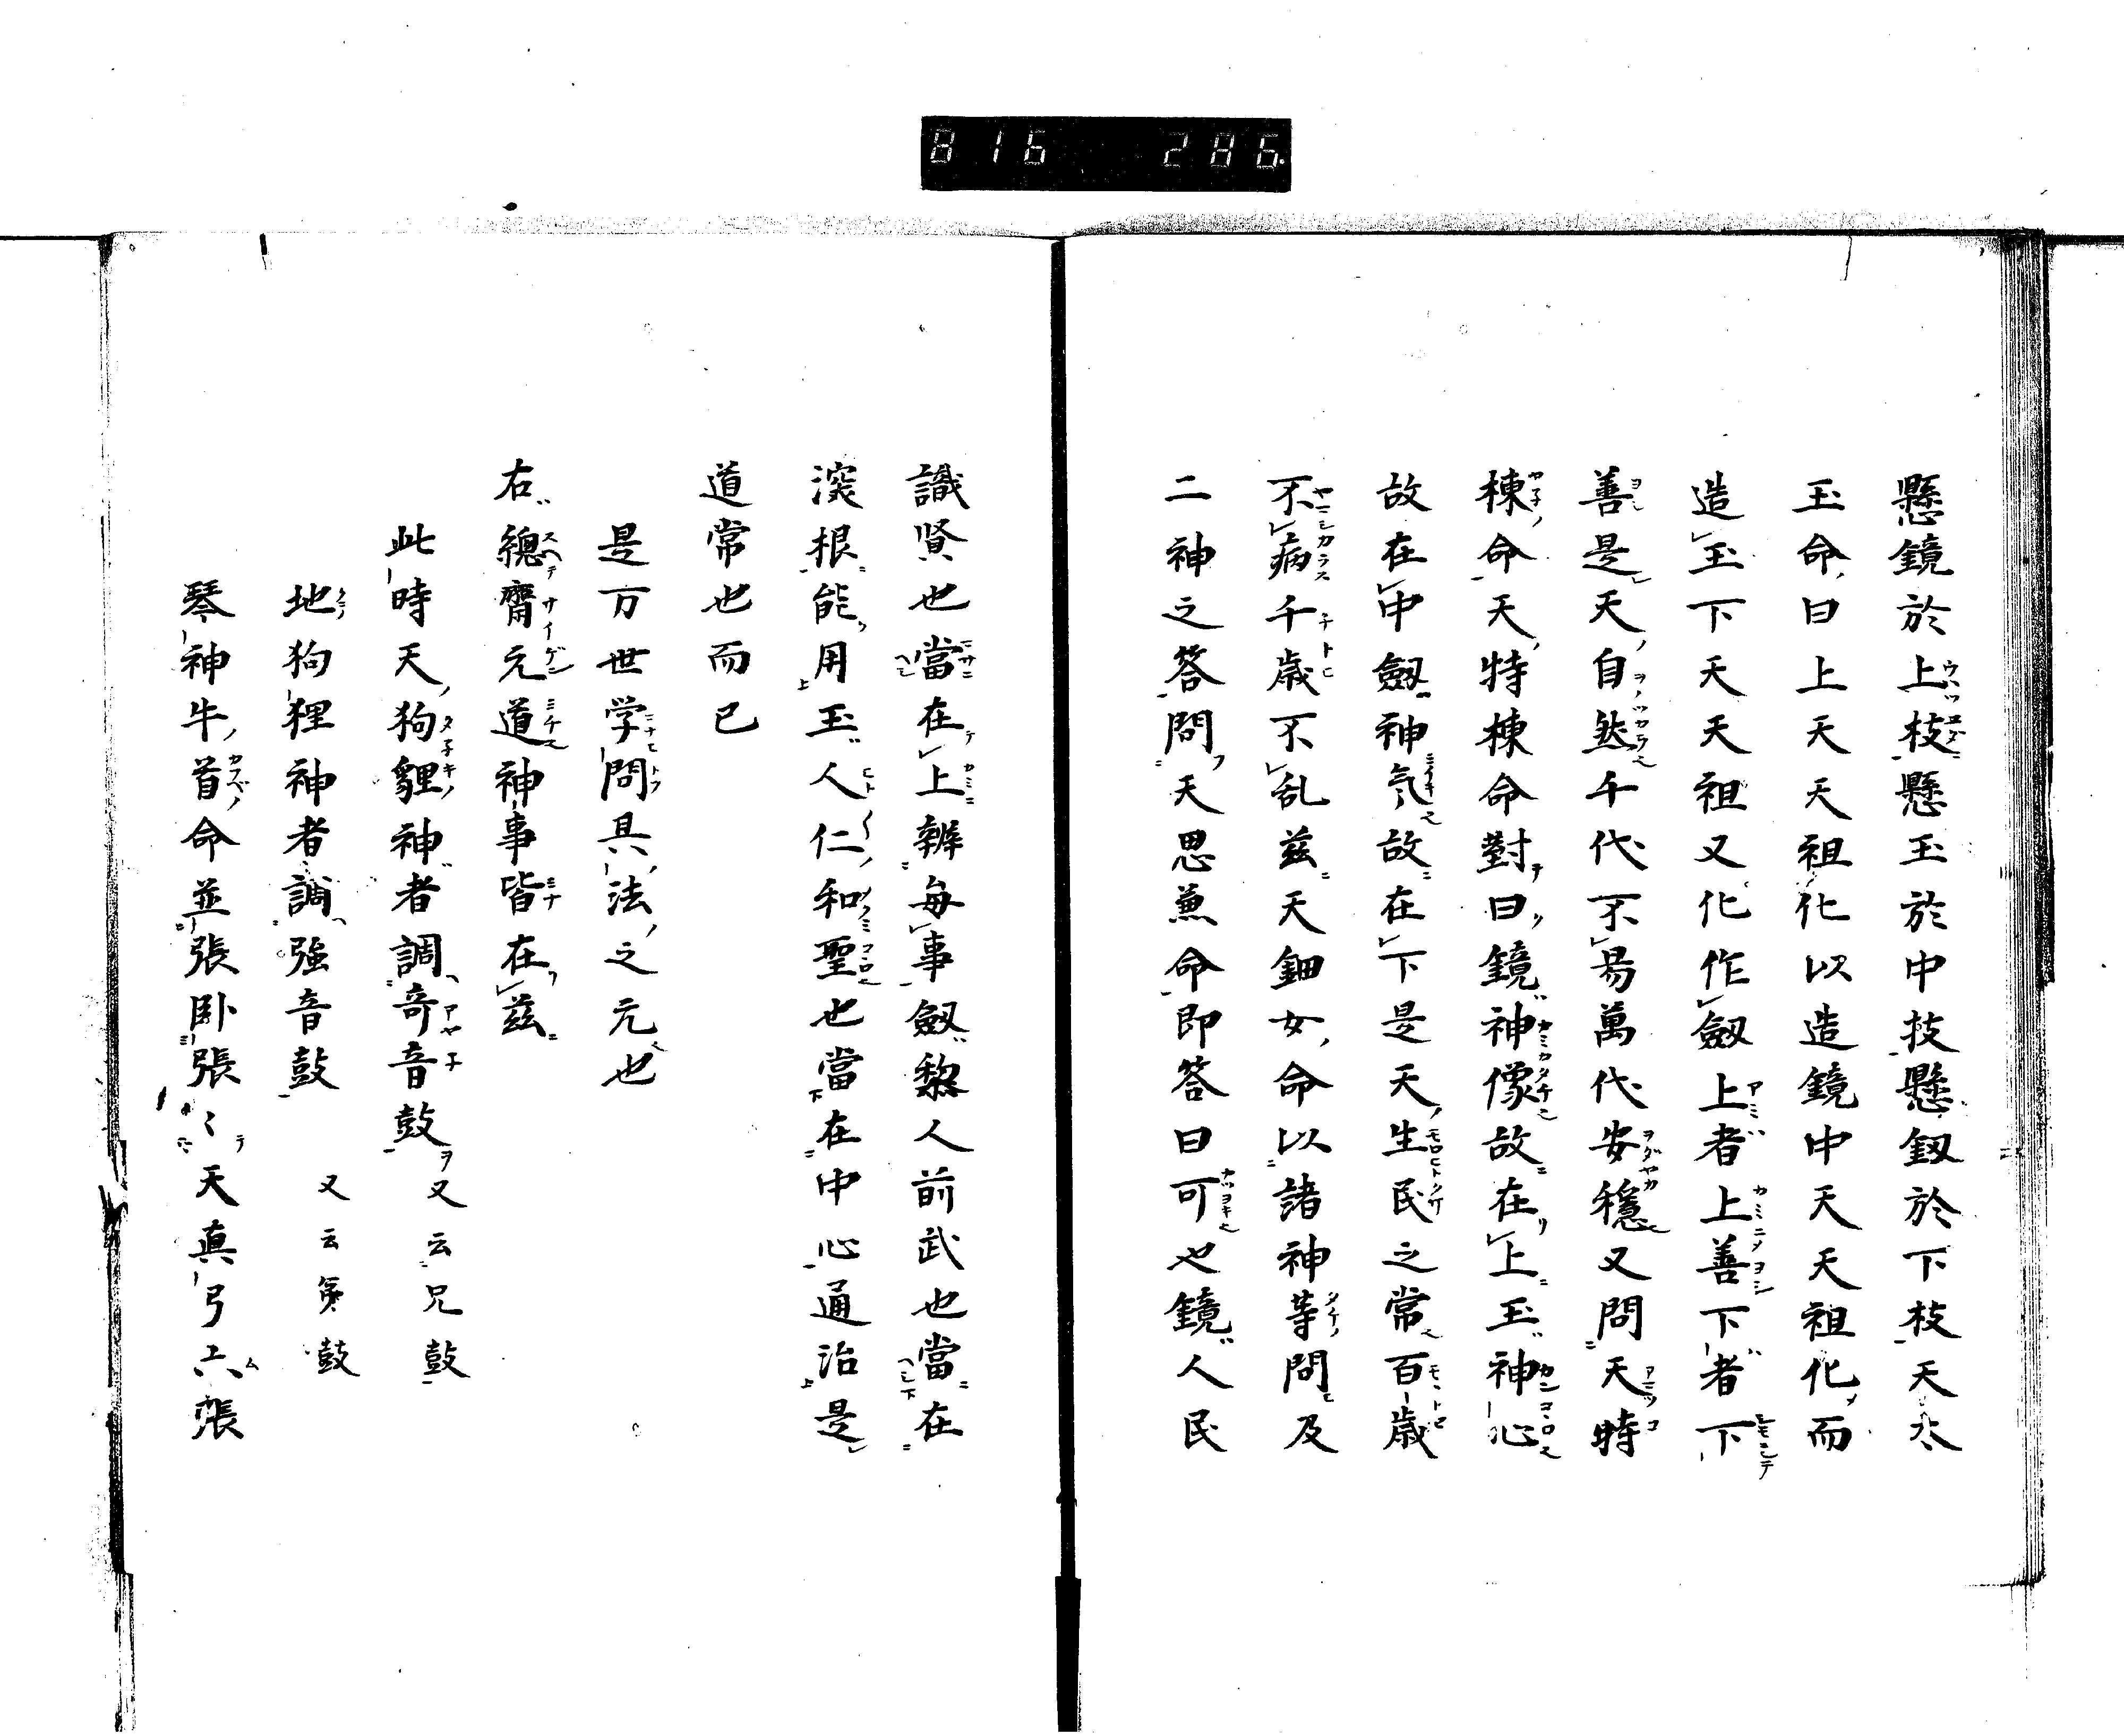 816 286
懸鏡於上枝懸玉於中技懸釼於下枝天太
玉命曰上天天祖化以造鏡中天天祖化而
造玉下天天祖又化作劔上者上善下者下
善是天自然千代不易萬代安穏又問天時
棟命天特棟命對曰鏡神像故在上玉神心
故在中劔神気故在下是天生民之常百歳
不病千歳不乱茲天鈿女命以諸神等問及
二神之答問天思兼命即答曰可也鏡人民
識賢也當在上辦毎事劔黎人前武也當在
深根能用玉人仁和聖也當在中心通治是
道常也而已
是万世学問具法之元也
右總齋元道神事皆在茲
此時天狗貍神者調奇音鼓 又云兄鼓
地狗狸神者調強音鼓 又云第鼓
琴神牛首命並張臥張〻天真弓六張